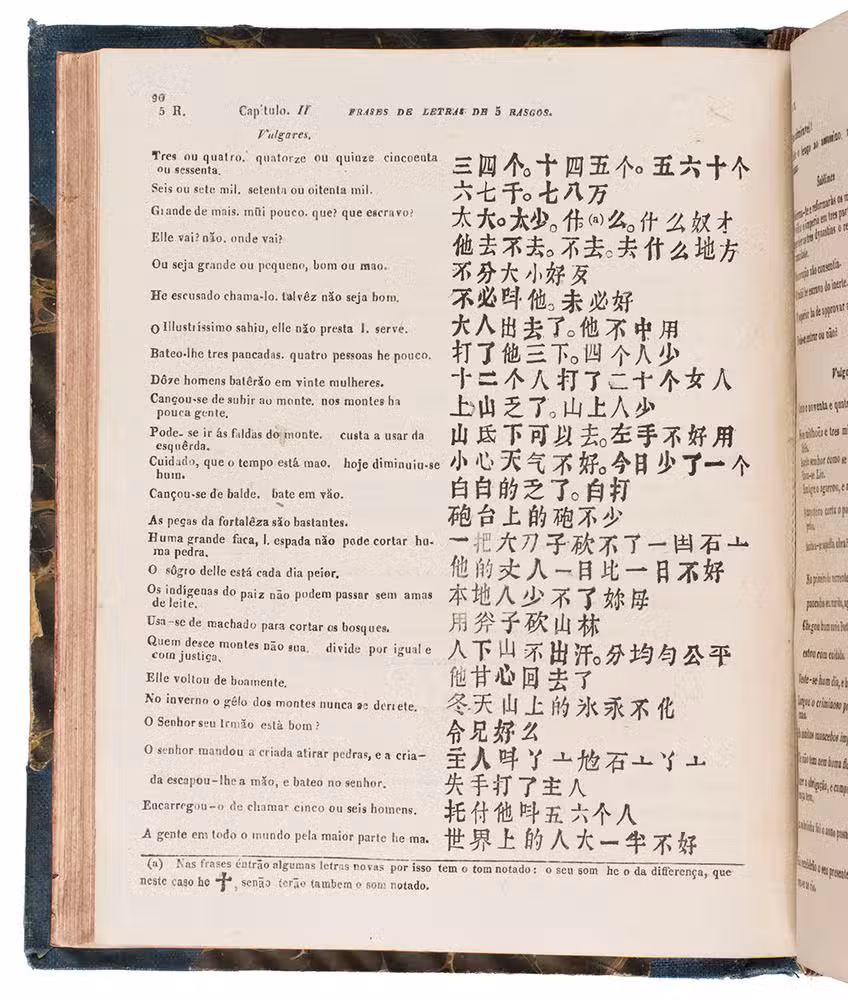 90
5 R. Capitulo. II FRASES DE LETRAS DE 5 RASGOS.
Vulgares.
Tres ou quatro. quatorze ou quinze cincoenta ou sessenta. 三四个。十四五个。五六十个
Seis ou sete mil. setenta ou oitenta mil. 六七千。七八万
Grande de mais. mũi pouco. que? que escravo? 太大。太少。什(a)么。什么奴才
Elle vai? não. onde vai? 他去不去。不去。去什么地方
Ou seja grande ou pequeno, bom ou mao. 不分大小好歹
He escusado chama-lo. talvêz não seja bom. 不必叫他。未必好
O Illustrissimo sahiu, elle não presta l. serve. 大人出去了。他不中用
Bateo-lhe tres pancadas. quatro pessoas he pouco. 打了他三下。四个人少
Dôze homens batêrão em vinte mulheres. 十二个人打了二十个女人
Cançou-se de subir ao monte. nos montes ha pouca gente. 上山乏了。山上人少
Pode-se ir ás faldas do monte. custa a usar da esquêrda. 山底下可以去。左手不好用
Cuidado, que o tempo está mao. hoje diminuiu-se hum. 小心天气不好。今日少了一个
Cançou-se de balde. bate em vão. 白白的乏了。白打
As peças da fortalêza são bastantes. 砲台上的砲不少
Huma grande faca, l. espada não pode cortar huma pedra. 一把大刀子砍不了一凷石头
O sôgro delle está cada dia peior. 他的丈人一日比一日不好
Os indigenas do paiz não podem passar sem amas de leite. 本地人少不了妳母
Usa-se de machado para cortar os bosques. 用斧子砍山林
Quem desce montes não sua. divide por igual e com justiça. 人下山不出汗。分均匀公平
Elle voltou de boamente. 他甘心回去了
No inverno o gêlo dos montes nunca se derrete. 冬天山上的氷永不化
O Senhor seu Irmão está bom? 令兄好么
O senhor mandou a criada atirar pedras, e a cria- 主人叫丫头地石头丫头
da escapou-lhe a mão, e bateo no senhor. 失手打了主人
Encarregou-o de chamar cinco ou seis homens. 托付他叫五六个人
A gente em todo o mundo pela maior parte he ma. 世界上的人大一半不好
(a) Nas frases éntrão algumas letras novas por isso tem o tom notado: o seu som he o da differença, que
neste caso he 十, senão terão tambem o som notado.
Sublimes